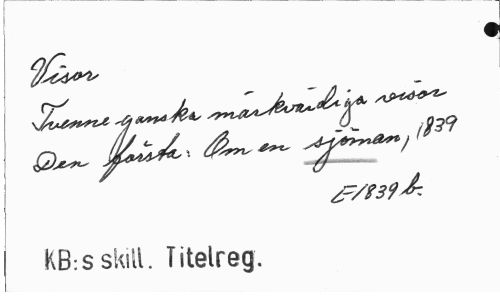 Visor
Tvenne ganska märkvärdiga visor
Den första: Om en sjöman, 1839
E1839 b.
KB:s skill. Titelreg.